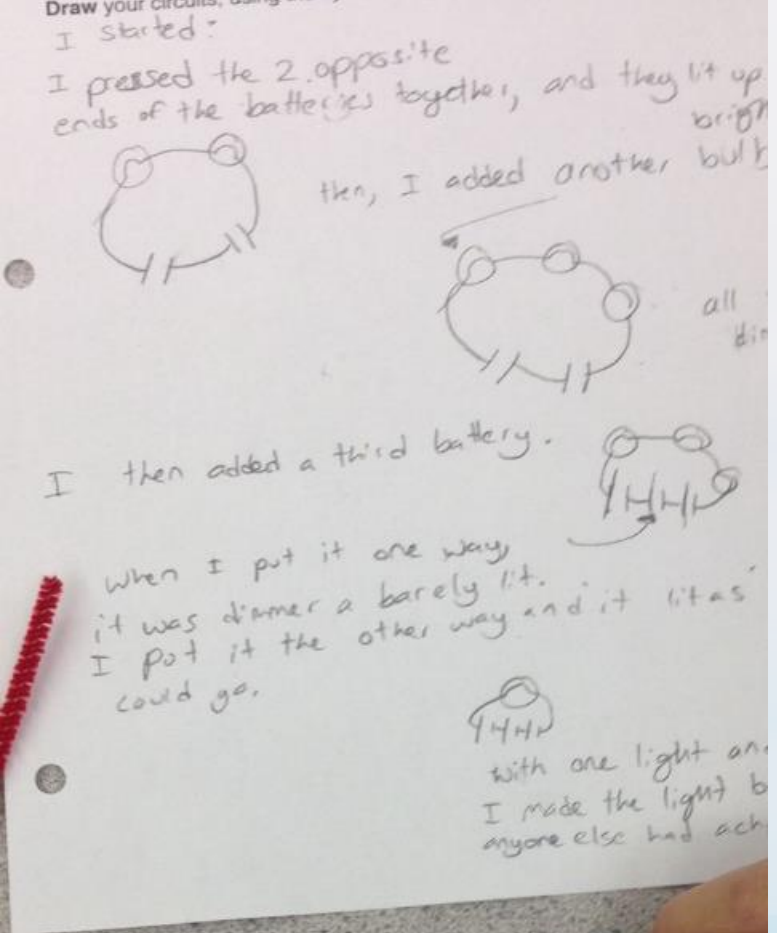 Draw your circuits,
I started:
I pressed the 2 opposite
ends of the batteries together, and they lit up
then, I added another bulb
all
I then added a third battery.
when I put it one way,
it was dimmer a barely lit.
I put it the other way and it lit as
could go.
with one light
I made the light
anyone else had